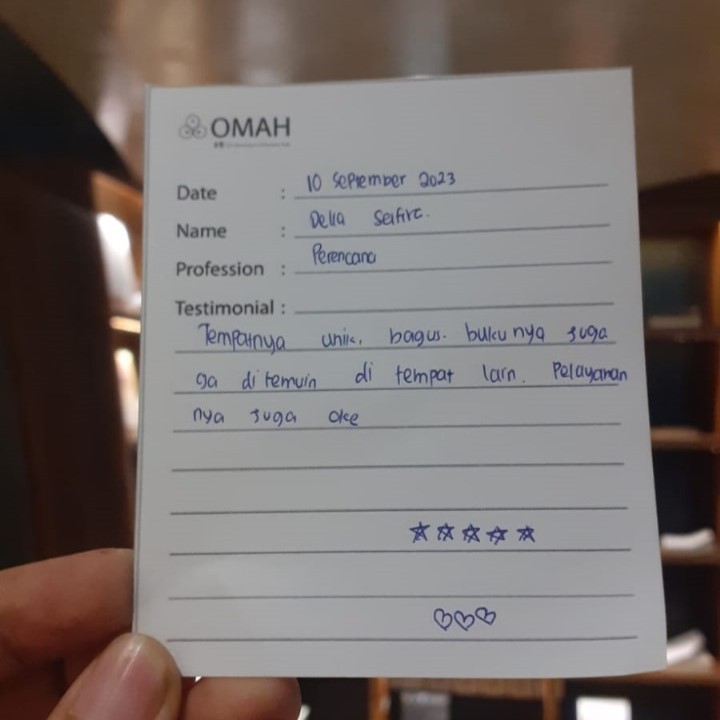 OMAH
Date : 10 September 2023
Name : Della Seifirc.
Profession : Perencana
Testimonial :
Tempatnya unik, bagus. bukunya juga
ga ditemuin di tempat lain. Pelayanan
nya juga oke